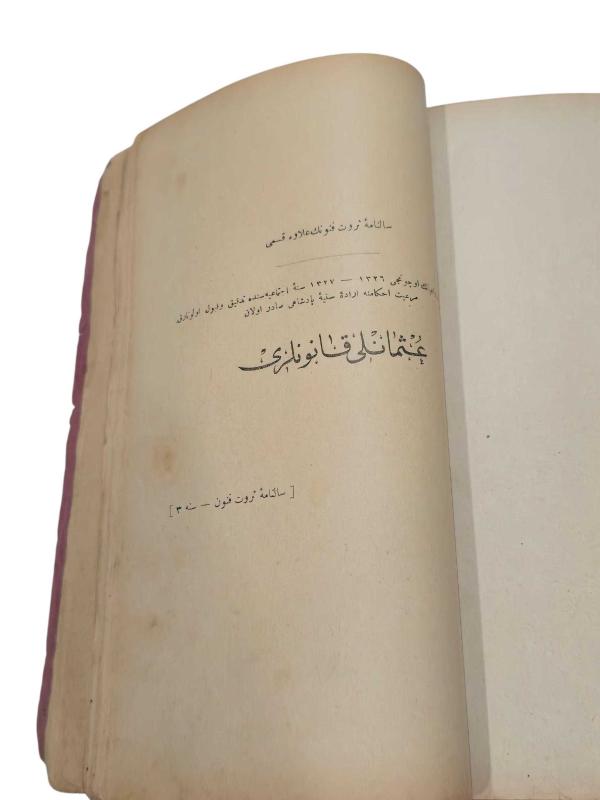 سالنامهٔ ثروت فنونك علاوه قسمی
اوچونجی ١٣٢٦ — ١٣٢٧ سنهٔ اجتماعیه‌سنده تدقیق و قبول اولونارق
مرعیت احكامنه ارادهٔ سنیهٔ پادشاهی صادر اولان
عثمانلی قانونلری
[ سالنامهٔ ثروت فنون — سنه ٣ ]